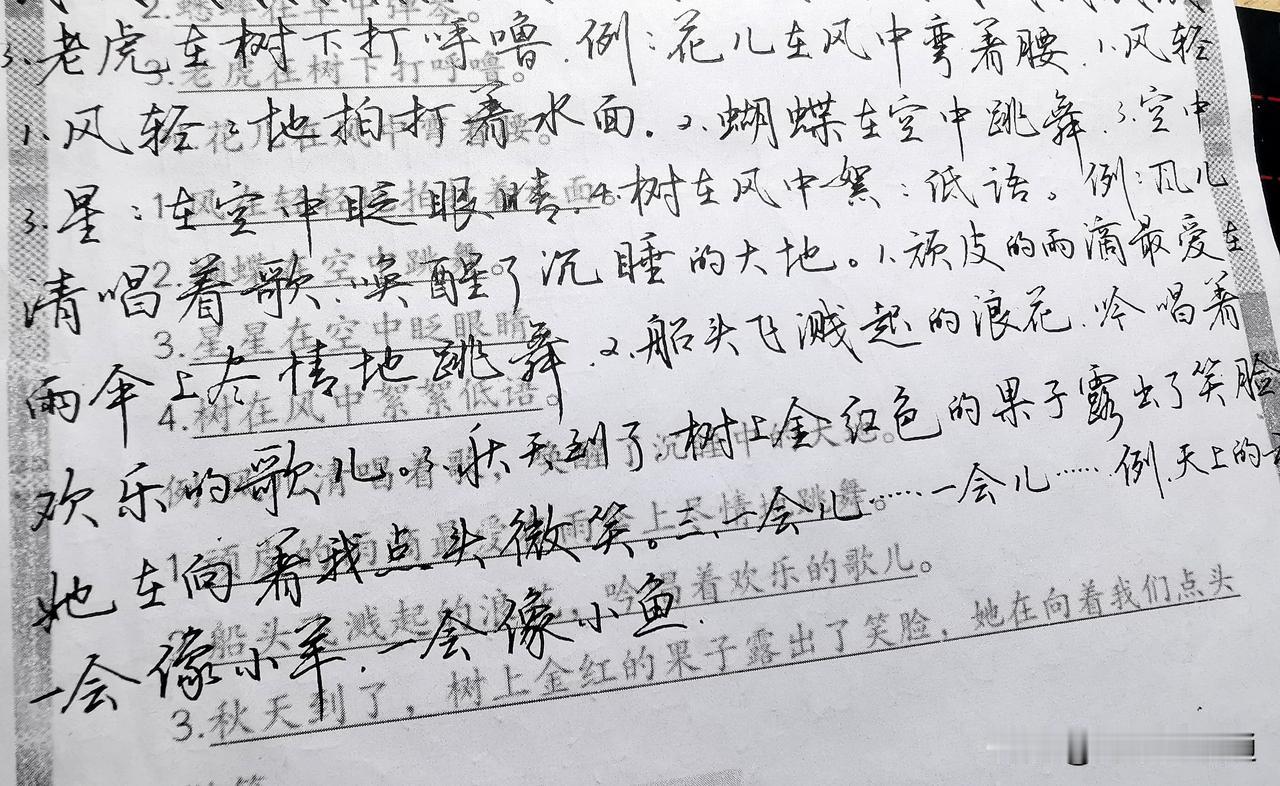 2.蟋蟀在草中弹琴。
3.老虎在树下打呼噜.例:花儿在风中弯着腰.1.风轻
3.老虎在树下打呼噜。
1.风轻:地拍打着水面.2.蝴蝶在空中跳舞.3.空中
花儿在风中弯着腰。
3.星:在空中眨眼睛.4.树在风中絮:低语。例:风儿
1.风在轻轻地拍打着水面。
清唱着歌.唤醒了沉睡的大地。1.顽皮的雨滴最爱在
2.蝴蝶在空中跳舞。
3.星星在空中眨眼睛
雨伞上尽情地跳舞.2.船头飞溅起的浪花.吟唱着
4.树在风中絮絮低语。
欢乐的歌儿。3.秋天到了树上金红色的果子露出了笑脸
清唱着歌,唤醒了沉睡中的大地。
她在向着我点头微笑。三、一会儿……一会儿……例.天上的
1.顽皮的雨滴最爱在雨伞上尽情地跳舞。
船头飞溅起的浪花,吟唱着欢乐的歌儿。
一会像小羊.一会像小鱼.
3.秋天到了,树上金红的果子露出了笑脸,她在向着我们点头